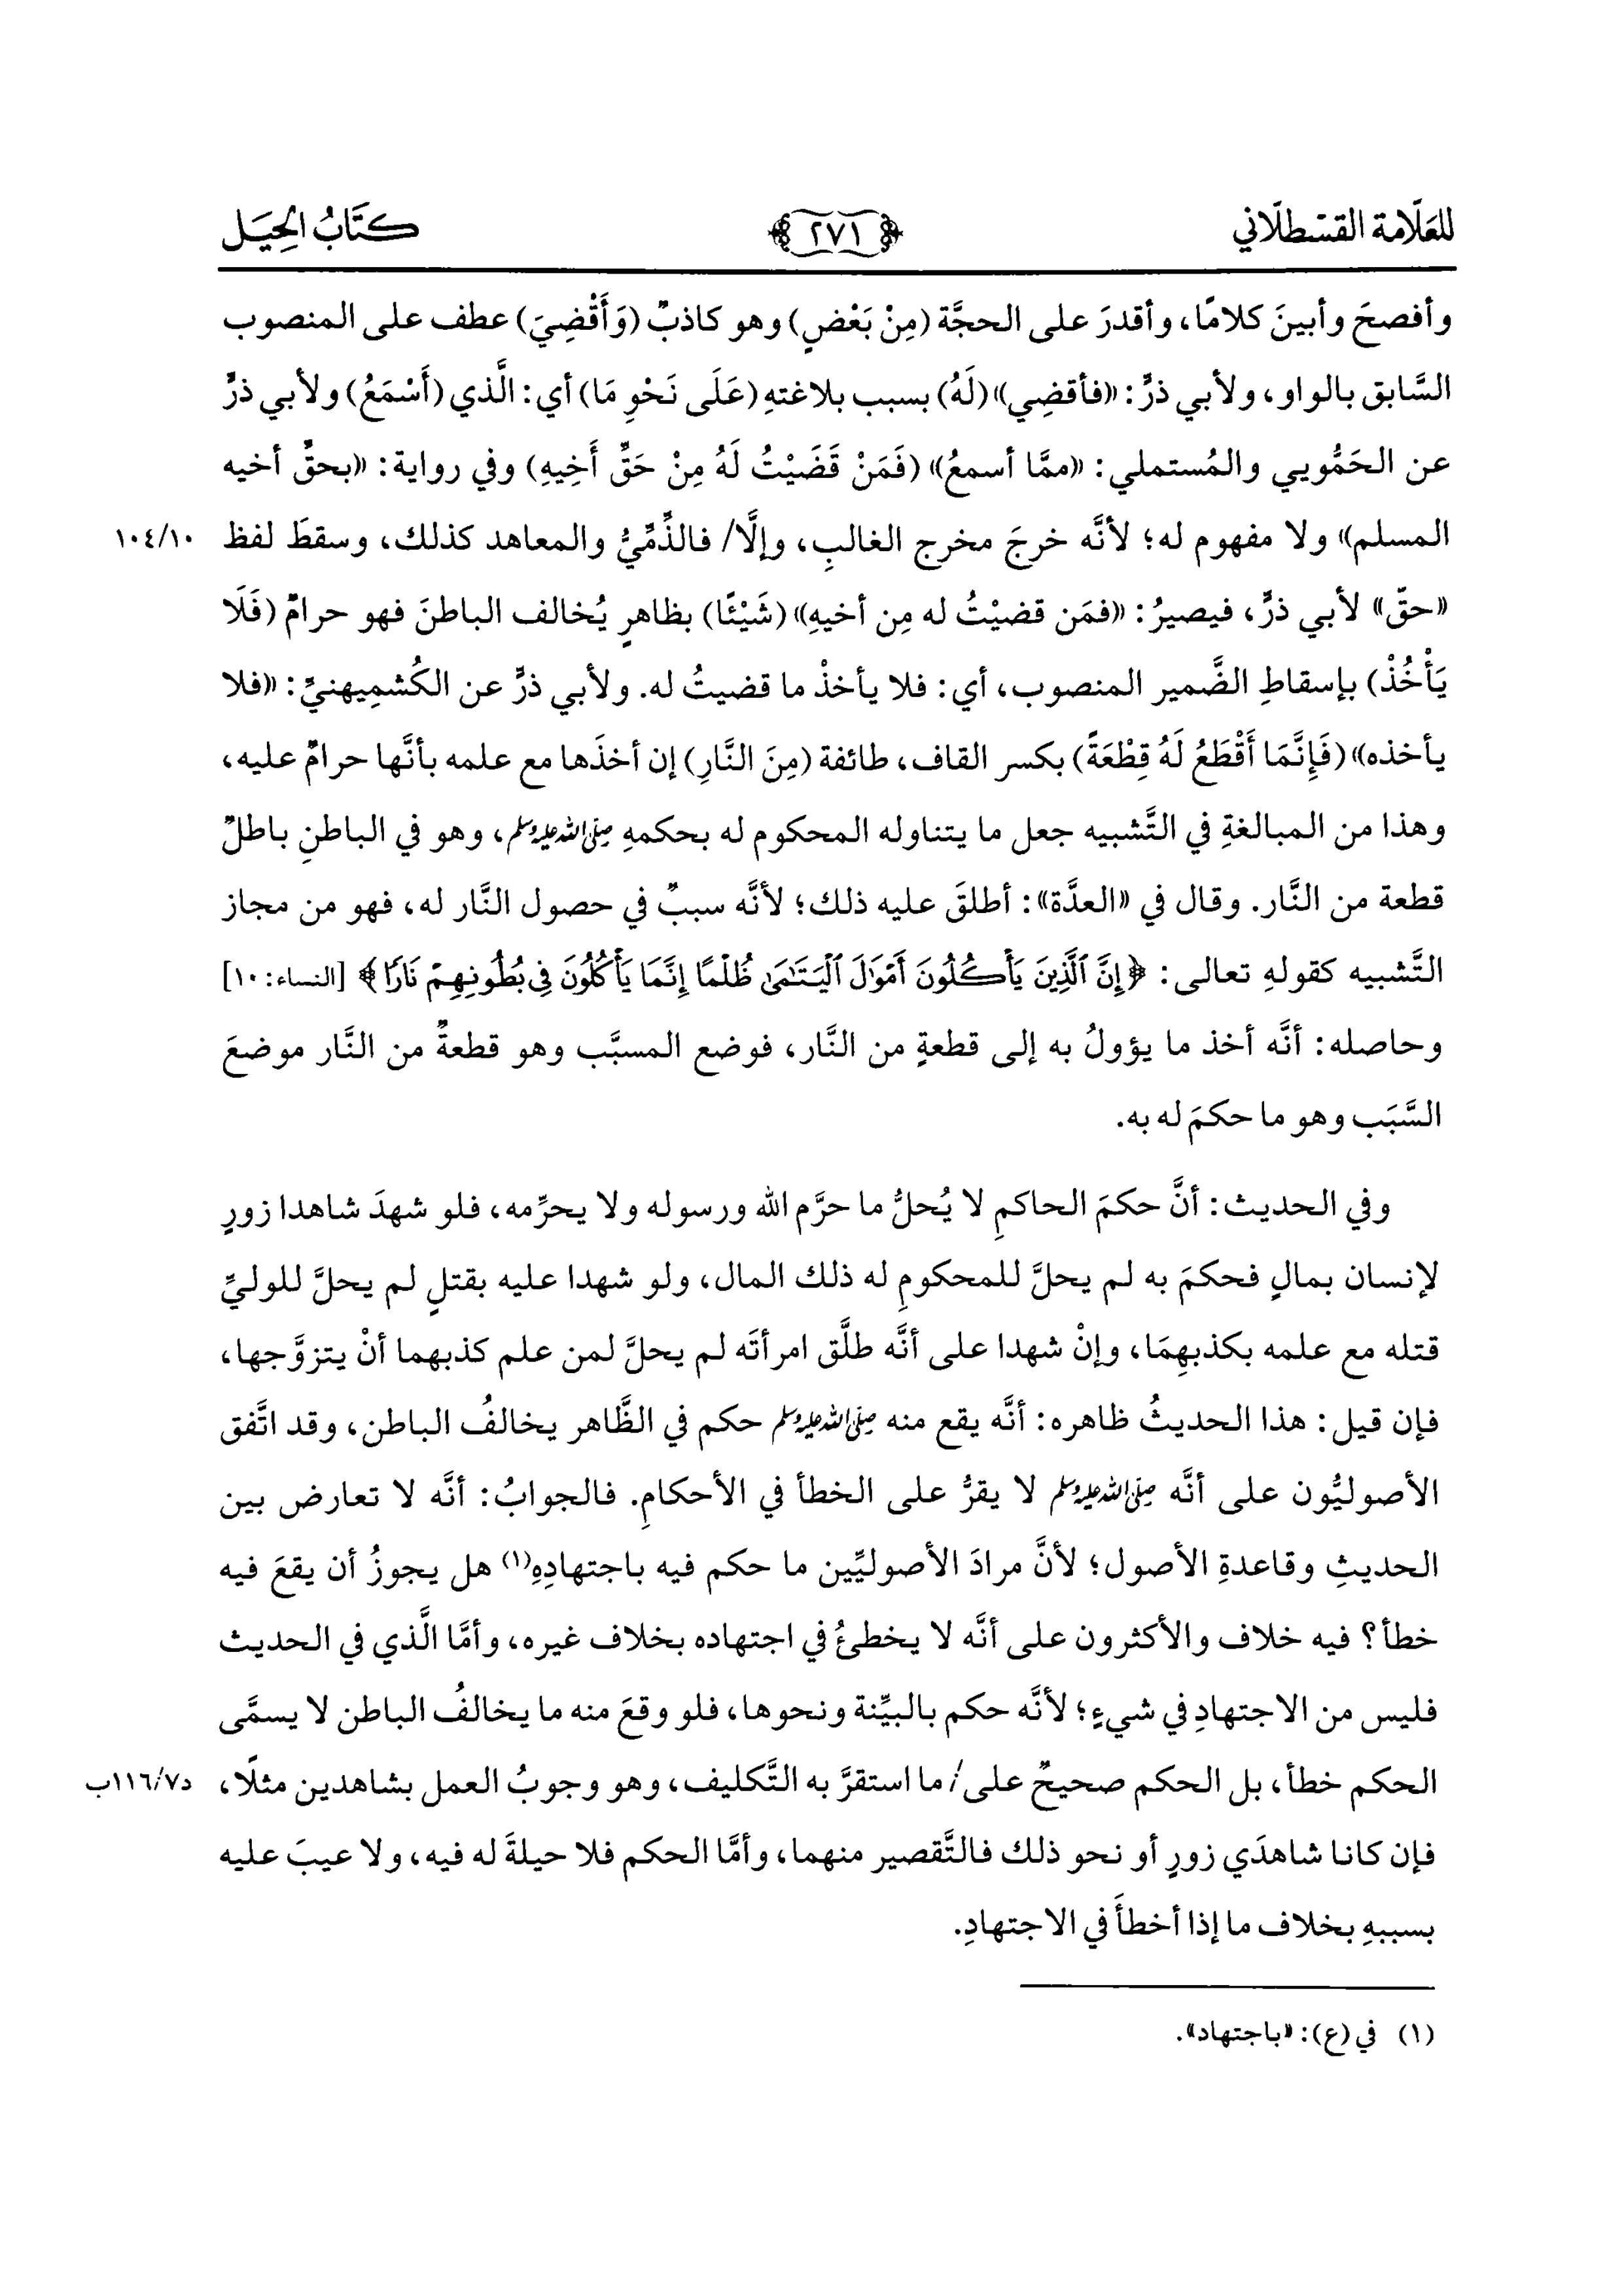 للعَلّامة القسْطلّاني ٢٧١ كتَابُ الحِيَل
وأفصحَ وأبينَ كلامًا، وأقدرَ على الحجَّة (مِنْ بَعْضٍ) وهو كاذبٌ (وَأَقْضِيَ) عطف على المنصوب
السَّابق بالواو، ولأبي ذرٍّ: «فأقضِي» (لَهُ) بسبب بلاغتهِ (عَلَى نَحْوِ مَا) أي: الَّذي (أَسْمَعُ) ولأبي ذرٍّ
عن الحَمُّويي والمُستملي: «ممَّا أسمعُ» (فَمَنْ قَضَيْتُ لَهُ مِنْ حَقِّ أَخِيهِ) وفي رواية: «بحقِّ أخيه
المسلم» ولا مفهوم له؛ لأنَّه خرجَ مخرج الغالبِ، وإلَّا/ فالذِّمِّيُّ والمعاهد كذلك، وسقطَ لفظ ١٠٤/١٠
«حقّ» لأبي ذرٍّ، فيصيرُ: «فمَن قضيْتُ له مِن أخيهِ» (شَيْئًا) بظاهرٍ يُخالف الباطنَ فهو حرامٌ (فَلَا
يَأْخُذْ) بإسقاطِ الضَّمير المنصوب، أي: فلا يأخذْ ما قضيتُ له. ولأبي ذرٍّ عن الكُشمِيهنيِّ: «فلا
يأخذه» (فَإِنَّمَا أَقْطَعُ لَهُ قِطْعَةً) بكسر القاف، طائفة (مِنَ النَّارِ) إن أخذَها مع علمه بأنَّها حرامٌ عليه،
وهذا من المبالغةِ في التَّشبيه جعل ما يتناوله المحكوم له بحكمهِ صلى الله عليه وسلم، وهو في الباطنِ باطلٌ
قطعة من النَّار. وقال في «العدَّة»: أطلقَ عليه ذلك؛ لأنَّه سببٌ في حصول النَّار له، فهو من مجاز
التَّشبيه كقولهِ تعالى: ﴿إِنَّ ٱلَّذِينَ يَأْكُلُونَ أَمْوَٰلَ ٱلْيَتَٰمَىٰ ظُلْمًا إِنَّمَا يَأْكُلُونَ فِى بُطُونِهِمْ نَارًا﴾ [النساء: ١٠]
وحاصله: أنَّه أخذ ما يؤولُ به إلى قطعةٍ من النَّار، فوضع المسبَّب وهو قطعةٌ من النَّار موضعَ
السَّبَب وهو ما حكمَ له به.
وفي الحديث: أنَّ حكمَ الحاكمِ لا يُحلُّ ما حرَّم الله ورسوله ولا يحرِّمه، فلو شهدَ شاهدا زورٍ
لإنسان بمالٍ فحكمَ به لم يحلَّ للمحكومِ له ذلك المال، ولو شهدا عليه بقتلٍ لم يحلَّ للوليِّ
قتله مع علمه بكذبهِمَا، وإنْ شهدا على أنَّه طلَّق امرأتَه لم يحلَّ لمن علم كذبهما أنْ يتزوَّجها،
فإن قيل: هذا الحديثُ ظاهره: أنَّه يقع منه صلى الله عليه وسلم حكم في الظَّاهر يخالفُ الباطن، وقد اتَّفق
الأصوليُّون على أنَّه صلى الله عليه وسلم لا يقرُّ على الخطأ في الأحكامِ. فالجوابُ: أنَّه لا تعارض بين
الحديثِ وقاعدةِ الأصول؛ لأنَّ مرادَ الأصوليِّين ما حكم فيه باجتهادِهِ(١) هل يجوزُ أن يقعَ فيه
خطأ؟ فيه خلاف والأكثرون على أنَّه لا يخطئُ في اجتهاده بخلاف غيره، وأمَّا الَّذي في الحديث
فليس من الاجتهادِ في شيءٍ؛ لأنَّه حكم بالبيِّنة ونحوها، فلو وقعَ منه ما يخالفُ الباطن لا يسمَّى
الحكم خطأ، بل الحكم صحيحٌ على/ ما استقرَّ به التَّكليف، وهو وجوبُ العمل بشاهدين مثلًا، د١١٦/٧ب
فإن كانا شاهدَي زورٍ أو نحو ذلك فالتَّقصير منهما، وأمَّا الحكم فلا حيلةَ له فيه، ولا عيبَ عليه
بسببهِ بخلاف ما إذا أخطأَ في الاجتهادِ.
(١) في (ع): «باجتهاد».